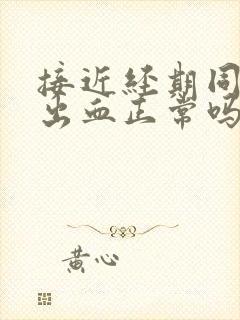 接近经期同
出血正常吗
黄心